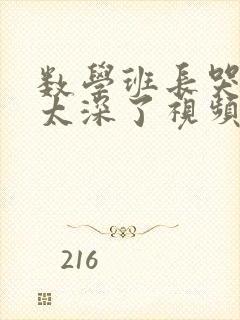 数學班長哭
太深了視頻
216